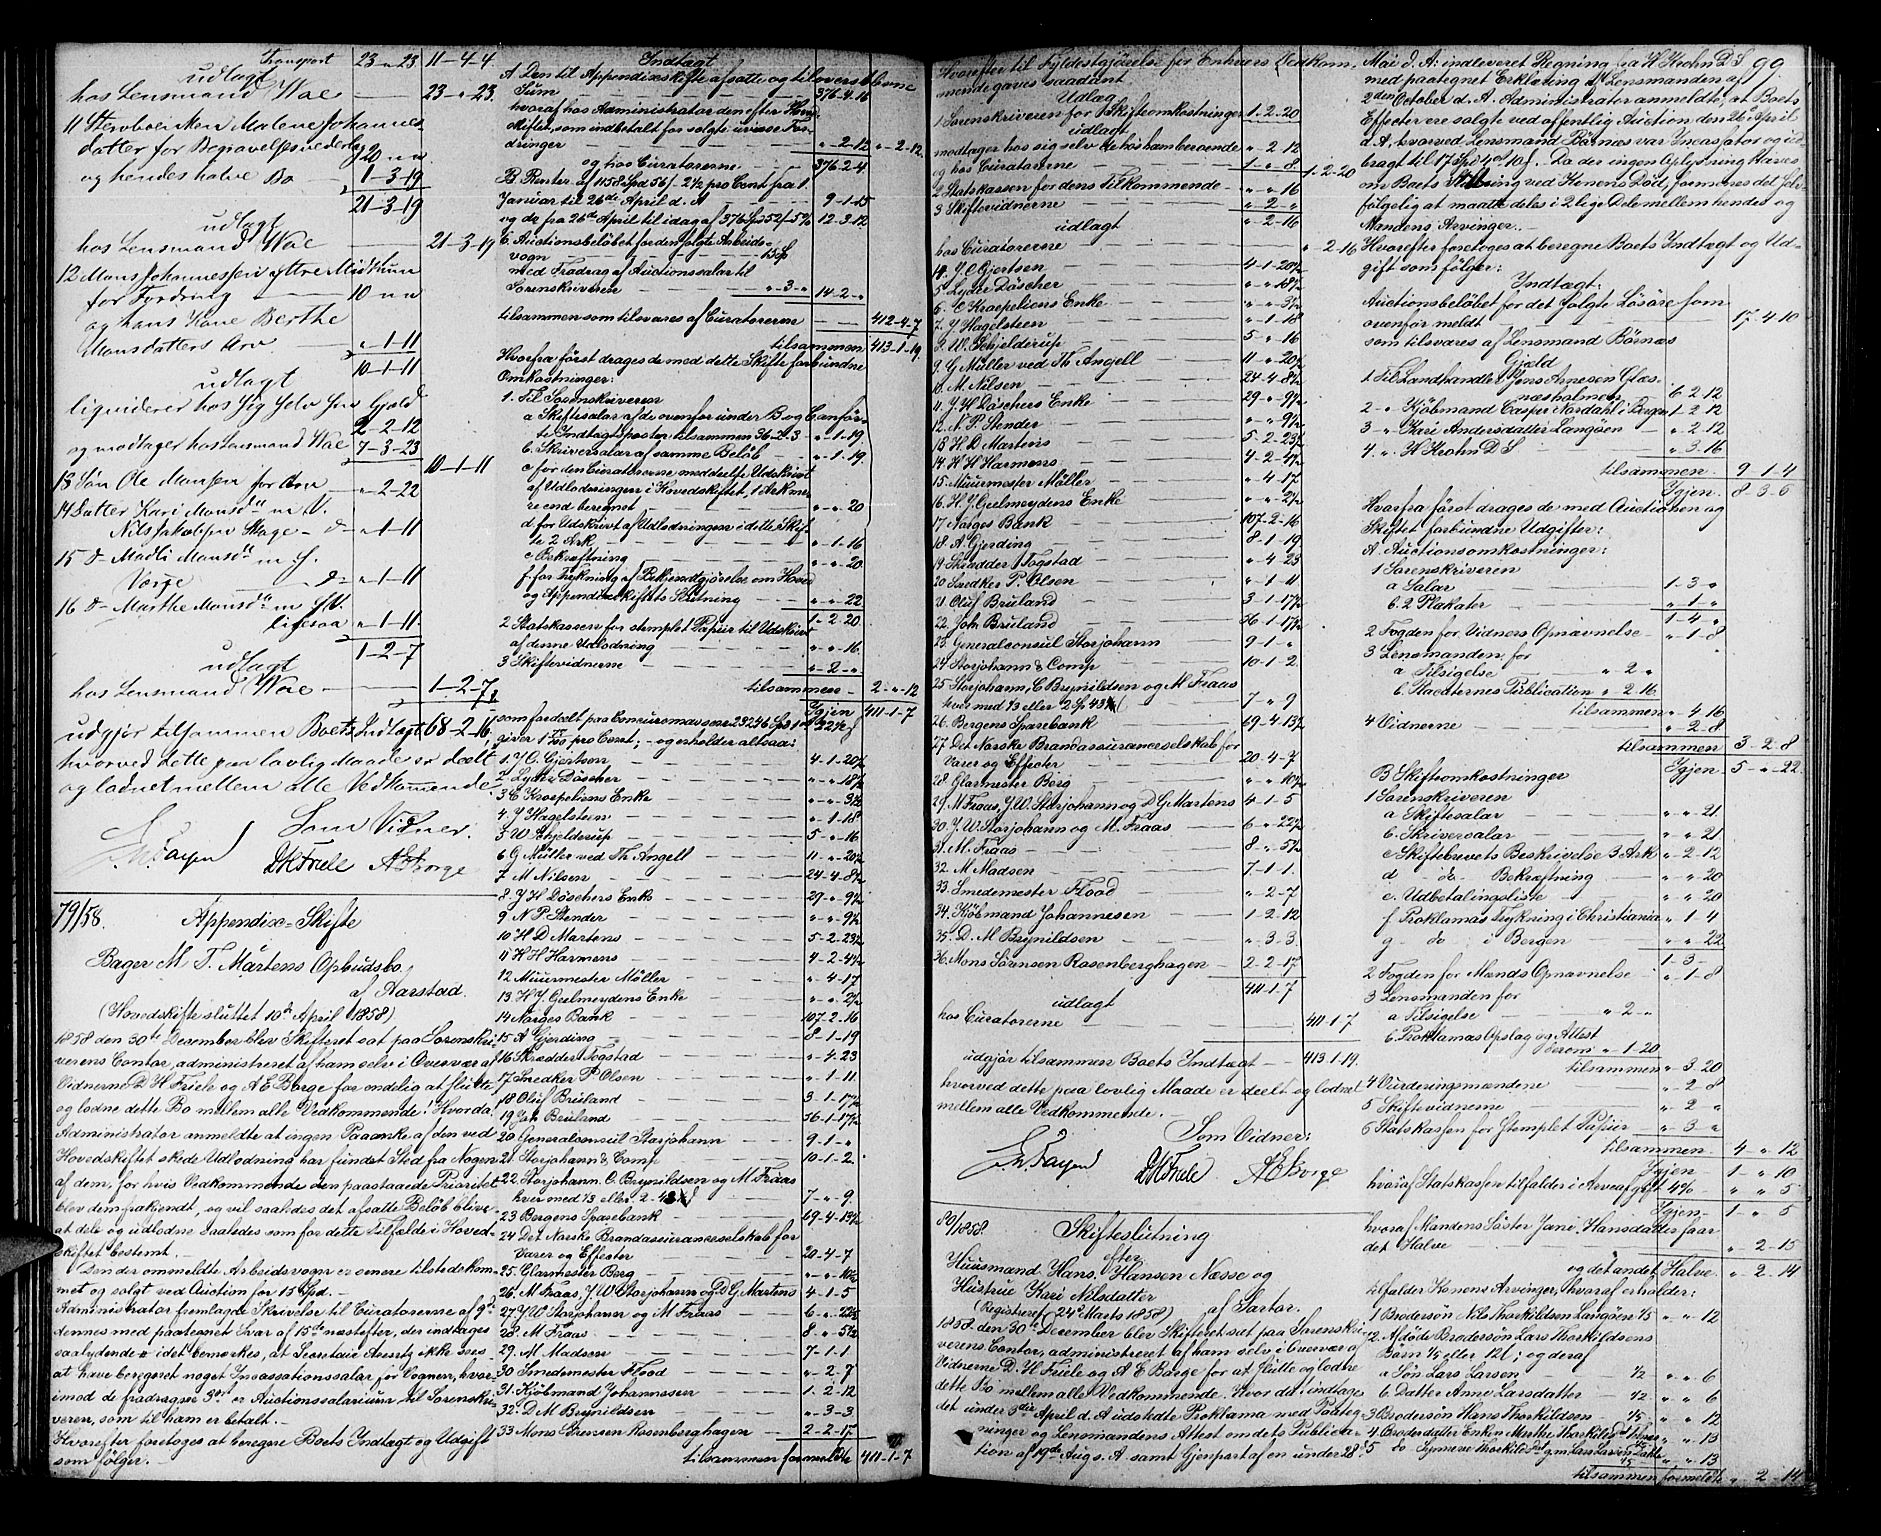 Transport 23 " 23 11-4-4
udlagt
hos Lensmand Wae — 23-"-23
11 Stervboenken Malene Johannes
datter for Begravelsesvederlag 20 " "
og hendes halve Bo — 1-3-19
21-3-19
udlagt
hos Lensmand Wae — 21-3-19
12 Mons Johannessen yttre Midttun
for Fordring — 10 " "
og hans Kone Berthe
Monsdatters Arv "-1-11
10-1-11
udlagt
liquiderer hos sig selv sin Gjæld
2-2-12
og modtager hos Lensmand Wae 7-3-23
10-1-11
13 Søn Ole Monsen for Arv — "-2-22
14 Datter Kari Monsd m V.
Nils Jakobsen Hage — d° "-1-11
15 d° Madli Monsd m f.
Værge — d° "-1-11
16 d° Marthe Monsd m f V.
"-1-11
1-2-7
udlagt
hos Lensmand Wae — 1-2-7
udgjør tilsammen Boets Indtægt 68-2-16
hvorved dette paa lovlig Maade er deelt
og lodnet mellem alle Vedkommende.
Som Vidner.
DHFriele AEBorge
79/58. Appendix-Skifte
Bager M T. Martens Opbudsbo
af Aarstad.
(Hovedskifte sluttet 10de April 1858)
1858 den 30te December blev Skifteret sat paa Sorenskri-
verens Contor, administreret af ham selv i Overvær af
Vidnerne D. H Friele og A E Borge for endelig at slutte
og lodne dette Bo mellem alle Vedkommende! Hvorda
Administrator anmeldte at ingen Paaanke af den ved
Hovedskiftet skede Udlodning har fundet Sted fra Nogen
af dem, for hvis Vedkommende den paastaaede Prioritet
blev dem frakjendt, og vil saaledes det afsatte Beløb blive
at dele og udlodne saaledes som for dette tilfælde i Hoved-
skiftet bestemt.
Den der ommeldte Arbeidsvogn er senere tilstedekom-
met og solgt ved Auction for 15 Spd.
Administrator fremlagde Skrivelse til Curatorerne af 9de
dennes med paategnet Svar af 15de næstefter, der indtages
saalydende: idet bemærkes, at Secretair Arentz ikke sees
at have beregnet noget Incassationssalar for Vognen, hvor-
imod de fradragne 3 ort er Auctionssalarium til Sorenskri-
veren, som til ham er betalt.
Hvorefter foretoges at beregne Boets Indtægt og Udgift
som følger.
Indtægt
A. Den til Appendixskifte afsatte og tiloversblevne
Sum — 376-4-16
hvoraf hos Administrator den efter Hoved-
skiftet, som indbetalt for solgte uvisse For-
dringer — "-2-12 "-2-12
og hos Curatorerne — 376-2-4
B Renter af 1158 Spd 56/- 2½ pro Cent fra 1.
Januar til 26de April d. A — 9-1-15
og do fra 26de April til idag af 376 Sp 52/- 5% 12-3-12
C Auctionsbeløbet for den solgte Arbeids-
vogn — 15 Sp
med Fradrag af Auctionssalar til
Sorenskriveren — "-3-" 14-2-"
tilsammen som tilsvares af Curatorerne — 412-4-7
tilsammen 413-1-19
Hvorfra først drages de med dette Skifte forbundne
Omkostninger:
1. Til Sorenskriveren
a Skiftesalar af de ovenfor under B og C anfør-
te Indtægtsposter tilsammen 36-2-3 "-1-19
b. Skriversalar af samme Beløb — "-1-19
c for den Curatorerne meddeelte Udskrivt
af Udlodningen i Hovedskiftet, 1 Ark me-
re end beregnet — "-"-20
d. for Udskrivt af Udlodningen i dette Skif-
te 2 Ark — "-1-16
e Bekræftning — "-"-20
f. for Trykning af Bekjendtgjørelse om Hoved
og Appendixskiftets Slutning — "-"-22
1-2-20
2 Statskassen for stemplet Papir til Udskrivt
af denne Udlodning — "-"-16
3 Skiftevidnerne — "-2-"
tilsammen — 2-"-12
Igjen 411-1-7
giver — pro Cent; — og erholder altsaa:
1. Y C. Gjertsen — 4-1-20½
2 Lyder Döscher — "-"-18½
3 C Kroepeliens Enke — "-"-3½
4 J Hagelsteen — "-1-18
5 W. Schjelderup — 5-"-16
6 G Müller ved Th. Angell — 11-"-20½
7 M Nilsen — 24-4-8½
8 J H Döschers Enke — 29-"-9½
9 N P. Stender — "-"-9½
10 H D Martens — 5-2-23½
11 H H Harmens — 4-2-4½
12 Muurmester Møller — "-4-17
13 H J. Geelmeydens Enke — "-"-2½
14 Norges Bank — 107-2-16
15 A Gjerding — 8-1-19
16 Skrædder Fogstad — "-4-23
17 Snedker P Olsen — "-1-11
18 Oluf Bruland — 3-1-17½
19 Joh Bruland — 36-1-17½
20 Generalconsul Storjohann — 9-1-"
21 Storjohann & Comp — 10-1-2
22 Storjohann, C. Brynildsen og M Fraas
hver med 1/3 eller 2-43 — 7-"-9
23 Bergens Sparebank — 69-4-13½
24 Det Norske Brandassuranceselskab for
Varer og Effecter — 20-4-7
25 Glarmester Berg — "-"-10½
26 M Fraas, J. W Storjohann og D G Martens 4-1-5
27 J W Storjohann og M Fraas — 6-"-22½
28 M Fraas — 8-"-5½
29 M. Madsen — 7-1-1
30 Smedemester Flood — "-2-7
31 Kjøbmand Johannesen — 1-2-12
32 D M Brynildsen — "-3-3
33 Mons Sørensen Rosenberghagen — 2-2-17
tilsammen formeldte 411-1-7
Hvorefter til Fyldestgjørelse for Enhvers Vedkom-
mende gaves saadant
Udlæg
1 Sorenskriveren for Skifteomkostninger 1-2-20
udlagt
modtager hos sig selv de hos ham beroende "-2-12
og hos Curatorerne — 1-"-8
1-2-20
2 Statskassen for dens Tilkommende — "-"-16
3 Skiftevidnerne — "-2-"
"-2-16
udlagt
hos Curatorerne — "-2-16
4. J. C Gjertsen — 4-1-20½
5 Lyder Döscher — "-"-18½
6 C Kroepeliens Enke — "-"-3½
7. J Hagelsteen — "-1-18
8 W. Schjelderup — 5-"-16
9. G Müller ved Th Angell — 11-"-20½
10 M. Nilsen — 24-4-8½
11 J H Döschers Enke — 29-"-9½
12 N. P. Stender — "-"-9½
13 H. D Martens — 5-2-23½
14 H H Harmens — 4-2-4½
15 Muurmester Möller — "-4-17
16 H. J. Geelmeydens Enke — "-"-2½
17 Norges Bank — 107-2-16
18 A. Gjerding — 8-1-19
19 Skrædder Fogstad — "-4-23
20 Snedker P. Olsen — "-1-11
21 Oluf Bruland — 3-1-17½
22 Joh Bruland — 36-1-17½
23 Generalconsul Storjohann — 9-1-"
24 Storjohann & Comp — 10-1-2
25 Storjohann, C Brynildsen og M Fraas
hver med 1/3 eller 2 Sp 43 — 7 " 9
26 Bergens Sparebank — 69-4-13½
27 Det Norske Brandassuranceselskab for
Varer og Effecter — 20-4-7
28 Glarmester Berg — "-"-10½
29 M Fraas, J. W. Storjohann og D G Martens 4-1-5
30. J. W Storjohann og M. Fraas — 6-"-22½
31. M. Fraas — 8-"-5½
32 M Madsen — 7-1-1.
33. Smedemester Flood — "-2-7
34. Kjöbmand Johannesen — 1-2-12
35. D. M Brynildsen — "-3-3
36. Mons Sørensen Rosenberghagen — 2-2-17
411-1-7
udlagt
hos Curatorerne — 411-1-7
udgjør tilsammen Boets Indtægt — 413-1-19.
hvorved dette paa lovlig Maade er deelt og lodnet
mellem alle Vedkommende.
Som Vidner:
DHFriele AEBorge
80/1858. Skifteslutning
efter
Huusmand Hans Hansen Næsse og
Hustrue Kari Nilsdatter
(Registreret 24de Marts 1858) af Sartor.
1858 den 30te December blev Skifteret sat paa Sorenskri-
verens Contor, administreret af ham selv i Overvær af
Vidnerne D. H Friele og A E Borge for at slutte og lodne
dette Bo mellem alle Vedkommende. Hvor da indtages
det under 3die April d. A udstedte Proklama med Paateg-
ninger og Lensmandens Attest om dets Publica-
tion af 19de Aug s. A. samt Gjenpart af en under 28de
Mai d. A: indleveret Regning fra H Krohn D S 99
med paategnet Erklæring af Lensmanden af
2den October d. A. Administrator anmeldte, at Boets
Effecter ere solgte ved offentlig Auction den 26de April
d A. hvorved Lensmand Börnæs var Incassator og ud-
bragt til 17 Spd 4 ort 10 s. Da der ingen Oplysning haves
om Boets Stilling ved Konens Död, formenes det føl-
følgelig at maatte deles i 2 lige Dele mellem hendes og
Mandens Arvinger.
Hvorefter foretoges at beregne Boets Indtægt og Ud-
gift som følger:
Indtægt:
Auctionsbeløbet for det solgte Løsøre som
ovenfor meldt — 17-4-10
som tilsvares af Lensmand Börnæs
Gjæld
1. Til Landhandler Jens Arnesen Glæs-
næsholmen — 6-2-12
2 " Kjöbmand Casper Nordahl i Bergen 1-2-12
3 " Kari Andersdatter Langöen — "-2-12
4 " H Krohn D S — "-3-16
tilsammen. 9-1-4
Igjen. 8-3-6
Hvorfra först drages de med Auctionen og
Skiftet forbundne Udgifter:
A. Auctionsomkostninger:
1 Sorenskriveren
a Salar — 1-3-"
b. 2 Plakater — "-1-"
1-4-"
2 Fogden for Vidners Opnævnelse — "-1-8
3 Lensmanden for
a Tilsigelse — "-2-"
b. Placaternes Publication "-2-16
tilsammen "-4-16
4 Vidnerne — "-2-8
tilsammen 3-2-8
Igjen 5-"-22
B Skifteomkostninger
1 Sorenskriveren
a Skiftesalar — "-"-21.
b. Skriversalar — "-"-21
c Skiftebrevets Beskrivelse 3 Ark "-2-12
d do Bekræftning — "-"-20
e. Udbetalingsliste — "-"-20
f Proklamas Trykning i Christiania "-1-4
g do i Bergen — "-"-22
1-3-"
2 Fogden for Mænds Opnævnelse — "-1-8
3 Lensmanden for
a Tilsigelse — "-2-"
b Proklamas Opslag og Attest
derom "-1-20
tilsammen "-3-20
4 Vurderingsmændene — "-2-8
5 Skiftevidnerne — "-2-"
6 Statskassen for stemplet Papir — "-3-"
tilsammen. 4-"-12
Igjen 1-"-10
hvoraf Statskassen tilfalder i Arveafgift 4% "-"-5
Igjen. 1-"-5
hvoraf Mandens Söster Jani Hansdatter faar
det Halve — "-2-15
og det andet Halve. "-2-14
tilfalder Konens Arvinger, hvoraf erholder:
1 Brodersøn Nils Thorkildsen Langöen 1/5 "-"-12
2 Afdöde Brodersön Lars Thorkildsens
Börn 1/5 eller 12 s; og deraf
a Søn Lars Larsen — 1/2 "-"-6
b Datter Anne Larsdatter — 1/2 "-"-6
3 Brodersön Hans Thorkildsen 1/5 "-"-12
4 Broderdatter Enken Marthe Thorkildsd "-"-13
5 do Synneve Thorkildsd g. m Lars Larsen 1/5 "-"-13
tilsammen formeldte "-2-14